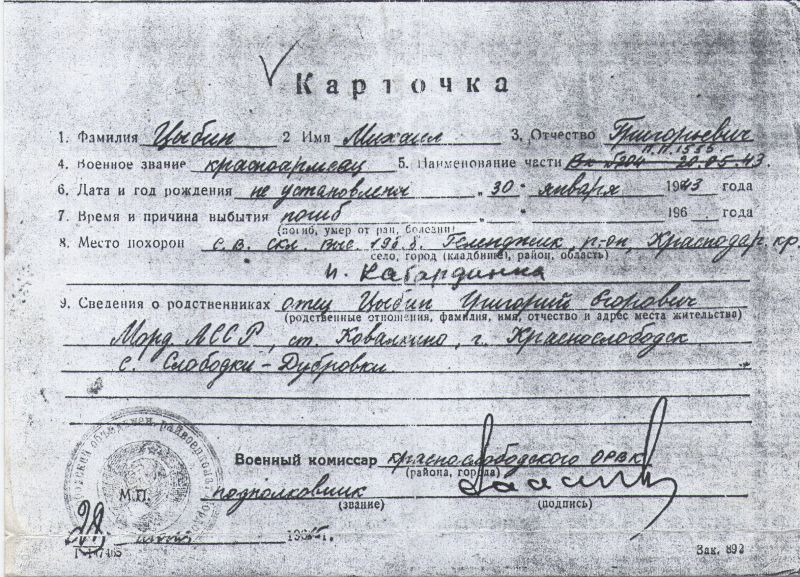 Карточка
1. Фамилия Цыбин 2 Имя Михаил 3. Отчество Григорьевич
п.п. 1556
4. Военное звание красноармеец 5. Наименование части 20.05.43.
6. Дата и год рождения не установлен „30" января 1943 года
7. Время и причина выбытия погиб „ " 196 года
(погиб, умер от ран, болезни)
8. Место похорон с.в. скл. выс. Геленджик, р-он, Краснодар. кр.
село, город (кладбище), район, область)
н. Кабардинка
9. Сведения о родственниках отец Цыбин Григорий Егорович
(родственные отношения, фамилия, имя, отчество и адрес места жительства)
Морд. АССР, ст. Ковалкино, г. Краснослободск
с. Слободки-Дубровки
Военный комиссар краснослободского ОРВК
(района, города)
М.П. подполковник
(звание) (подпись)
Зак. 892